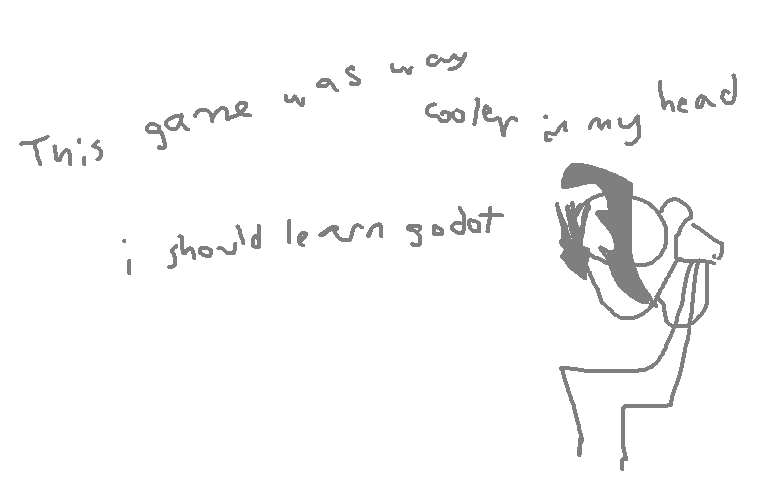 This game was way cooler in my head
i should learn godot